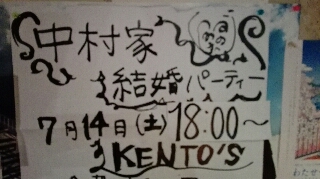 中村家
結婚パーティー
7月14日(土)18:00〜
KENTO'S